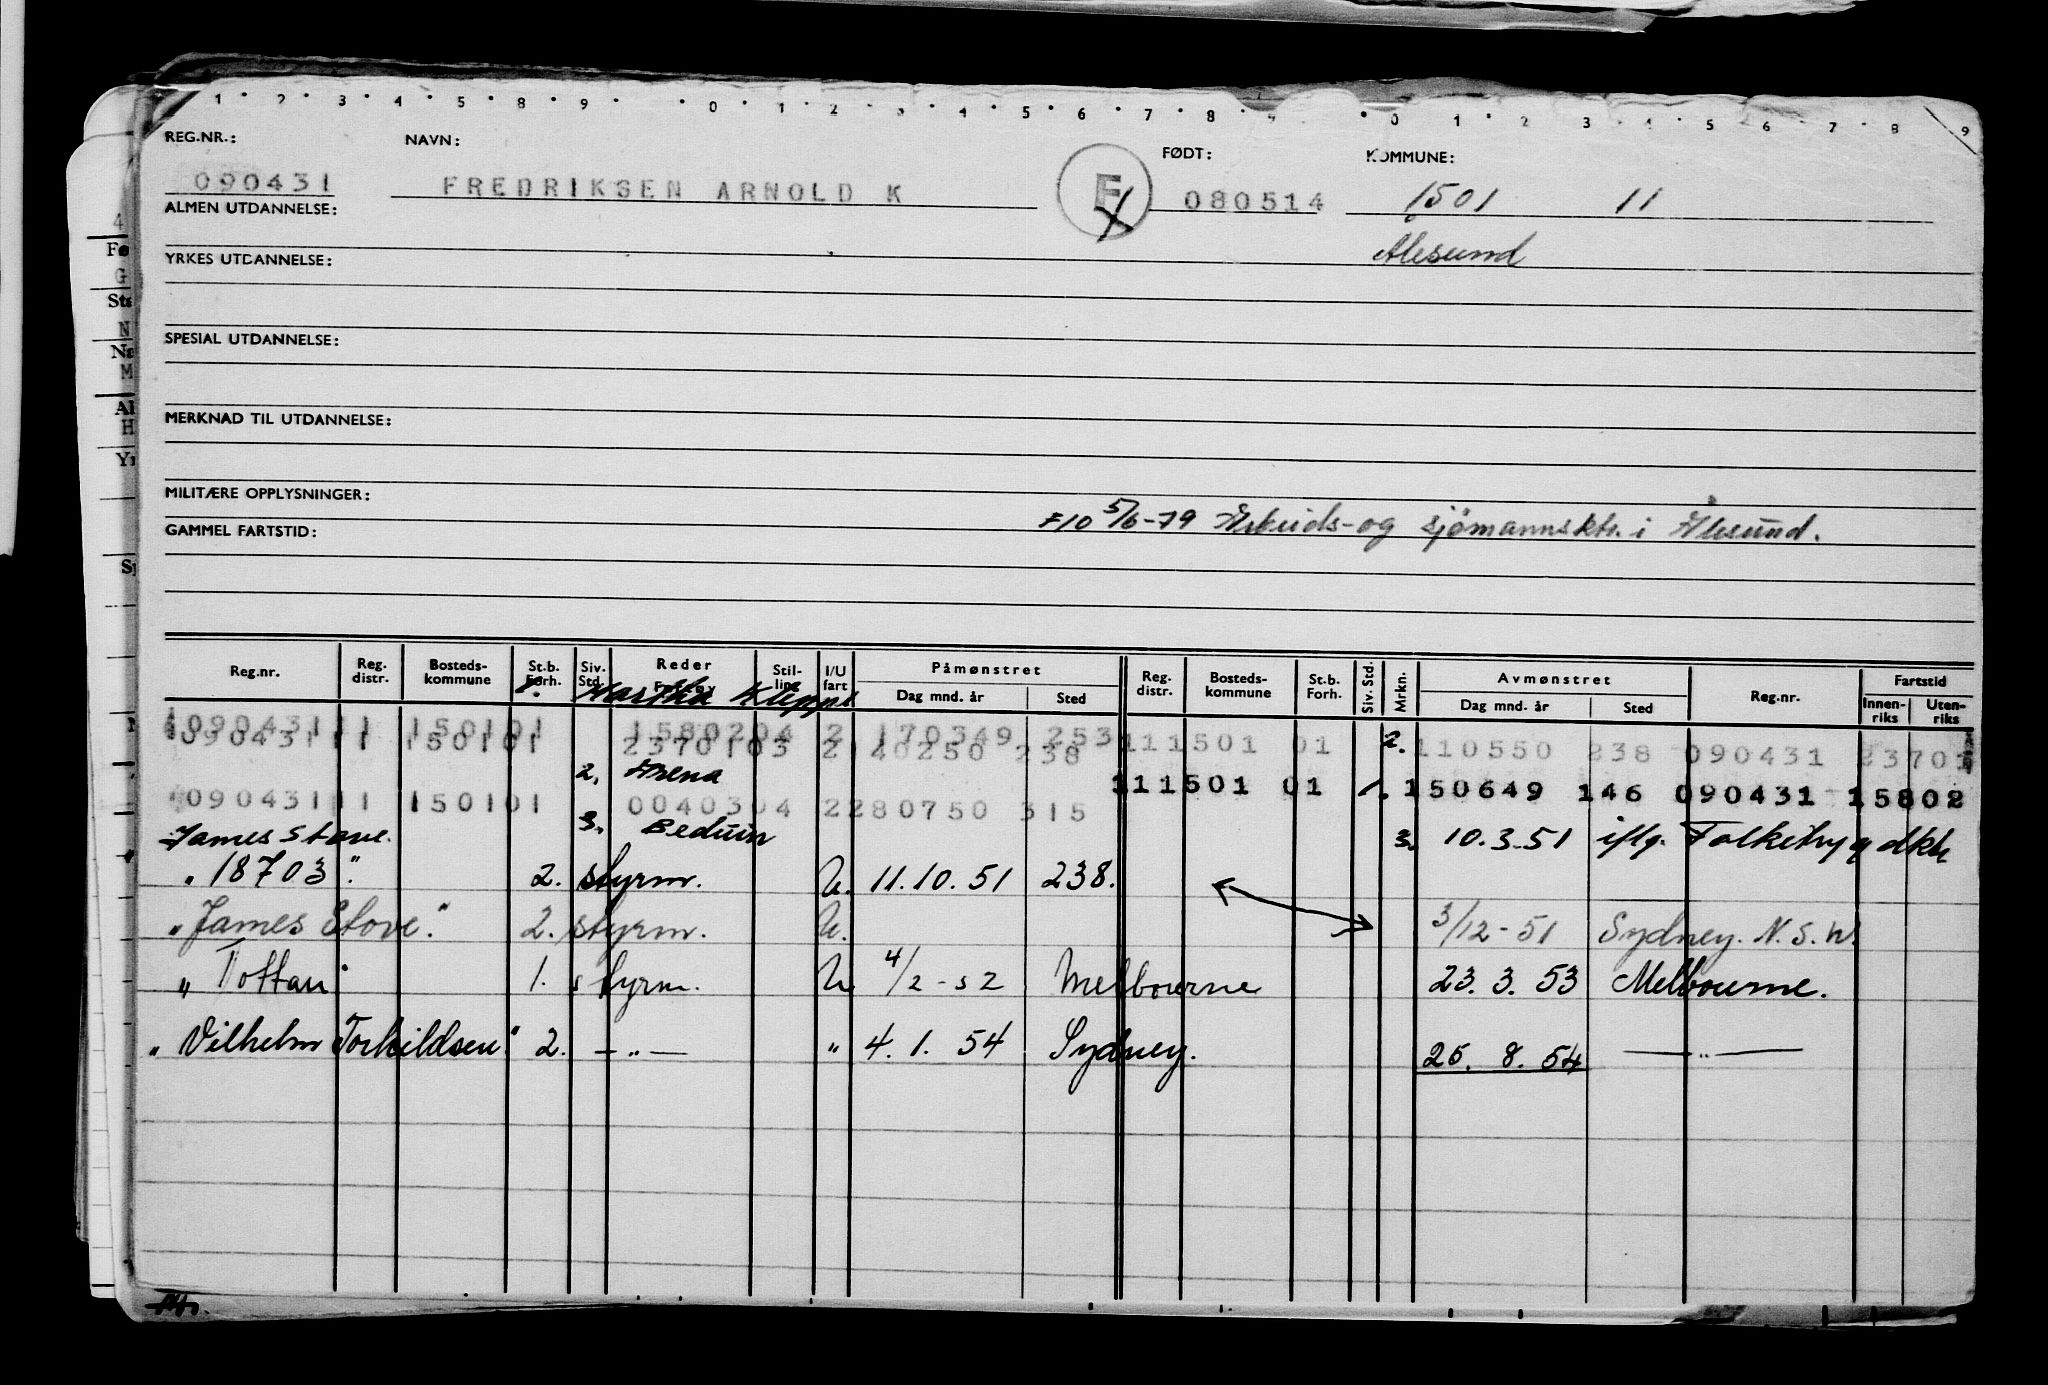 1 2 3 4 5 8 9 0 1 2 3 4 5 6 7 8 9 0 1 2 3 4 5 6 7 8 9
REG.NR.: NAVN: FØDT: KOMMUNE:
090431 FREDRIKSEN ARNOLD K F 080514 1501 11
ALMEN UTDANNELSE:
Ålesund
YRKES UTDANNELSE:
SPESIAL UTDANNELSE:
MERKNAD TIL UTDANNELSE:
MILITÆRE OPPLYSNINGER:
F10 5/6-79 Arbeids- og sjömannsktr. i Ålesund.
GAMMEL FARTSTID:
Reg.nr. Reg. distr. Bosteds-kommune St.b. Forh. Siv. Std. Reder Stil-ling I/U fart Påmønstret Dag mnd. år Sted Reg. distr. Bosteds-kommune St.b. Forh. Siv. Std. Mrkn. Avmønstret Dag mnd. år Sted Reg.nr. Fartstid Innen-riks Uten-riks
1. Martha Kleppe
090431 11 150101 1580204 2 170349 253
090431 11 150101 2370103 2 140250 238 111501 01 2. 110550 238 090431 23701
2. Arena
111501 01 1. 150649 146 090431 15802
090431 11 150101 0040304 2280750 315
3. Beduin
James Stove. 3. 10.3.51 iflg. Folketrygdktr
" 18703 " 2. styrm. U. 11.10.51 238.
" James Stove " 2. styrm. U. 3/12-51 Sydney. N.S.W.
" Tottan " 1. styrm. U 4/2-52 Melbourne 23.3.53 Melbourne.
" Vilhelm Torkildsen " 2. -"- " 4.1.54 Sydney. 25.8.54 -"-